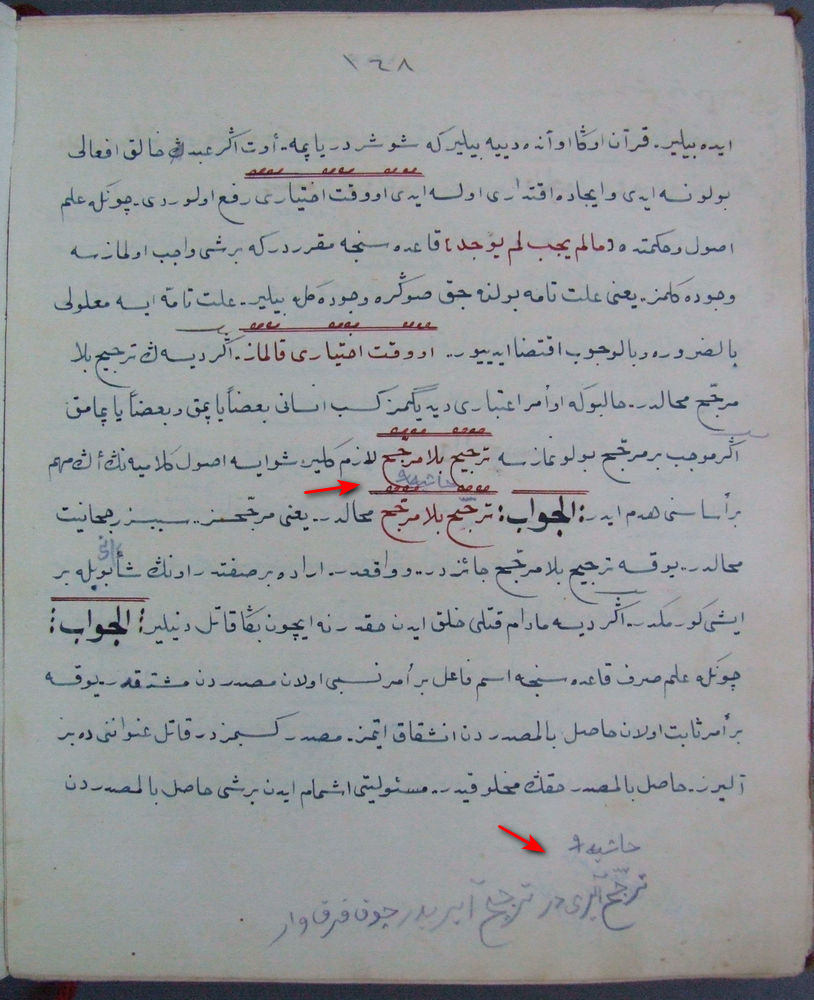 ١٤٨
ايده بيلير. قرآن اوڭا او آنده دييه بيلير كه شو شردر ياپمه. أوت اڭر عبدڭ خالق افعالى
بولونسه ايدى وايجاده اقتدارى اولسه ايدى او وقت اختيارى رفع اولوردى. چونكه علم
اصول وحكمتده (مالم يجب لم يوجد) قاعده سنجه مقرردر كه برشى واجب اولمازسه
وجوده كلمز. يعنى علت تامه بولنه جق صوڭره وجوده كله بيلير. علت تامه ايسه معلولى
بالضروره وبالوجوب اقتضا ايدييور. او وقت اختيارى قالماز. اڭر ديسه ڭ ترجيح بلا
مرجّح محالدر. حالبوكه او أمر اعتبارى ديديگمز كسب انسانى بعضاً ياپمق وبعضاً ياپمامق
اڭر موجب بر مرجّح بولونمازسه ترجيح بلا مرجّح لازم كلير. شو ايسه اصول كلاميه نڭ أڭ مهم
حاشيه ٩
بر أساسنى هدم ايدر: الجواب: ترجّح بلا مرجّح محالدر. يعنى مرجّحسز. سببسز رجحانيت
محالدر. يوقسه ترجيح بلا مرجّح جائزدر. و واقعدر. اراده بر صفتدر. اونڭ شأنى بويله بر
ايشى كورمكدر. اڭر ديسه مادام قتلى خلق ايدن حقدر نه ايچون بڭا قاتل دنيلير: الجواب:
چونكه علم صرف قاعده سنجه اسم فاعل بر أمر نسبى اولان مصدردن مشتقدر. يوقسه
بر أمر ثابت اولان حاصل بالمصدردن انشقاق ايتمز. مصدر كسبمزدر قاتل عنواننى ده بز
آليرز. حاصل بالمصدر حقڭ مخلوقيدر. مسئوليتى اشمام ايدن برشى حاصل بالمصدردن
حاشيه ٩
ترجّح آيرى در ترجيح آيريدر چوق فرق وار